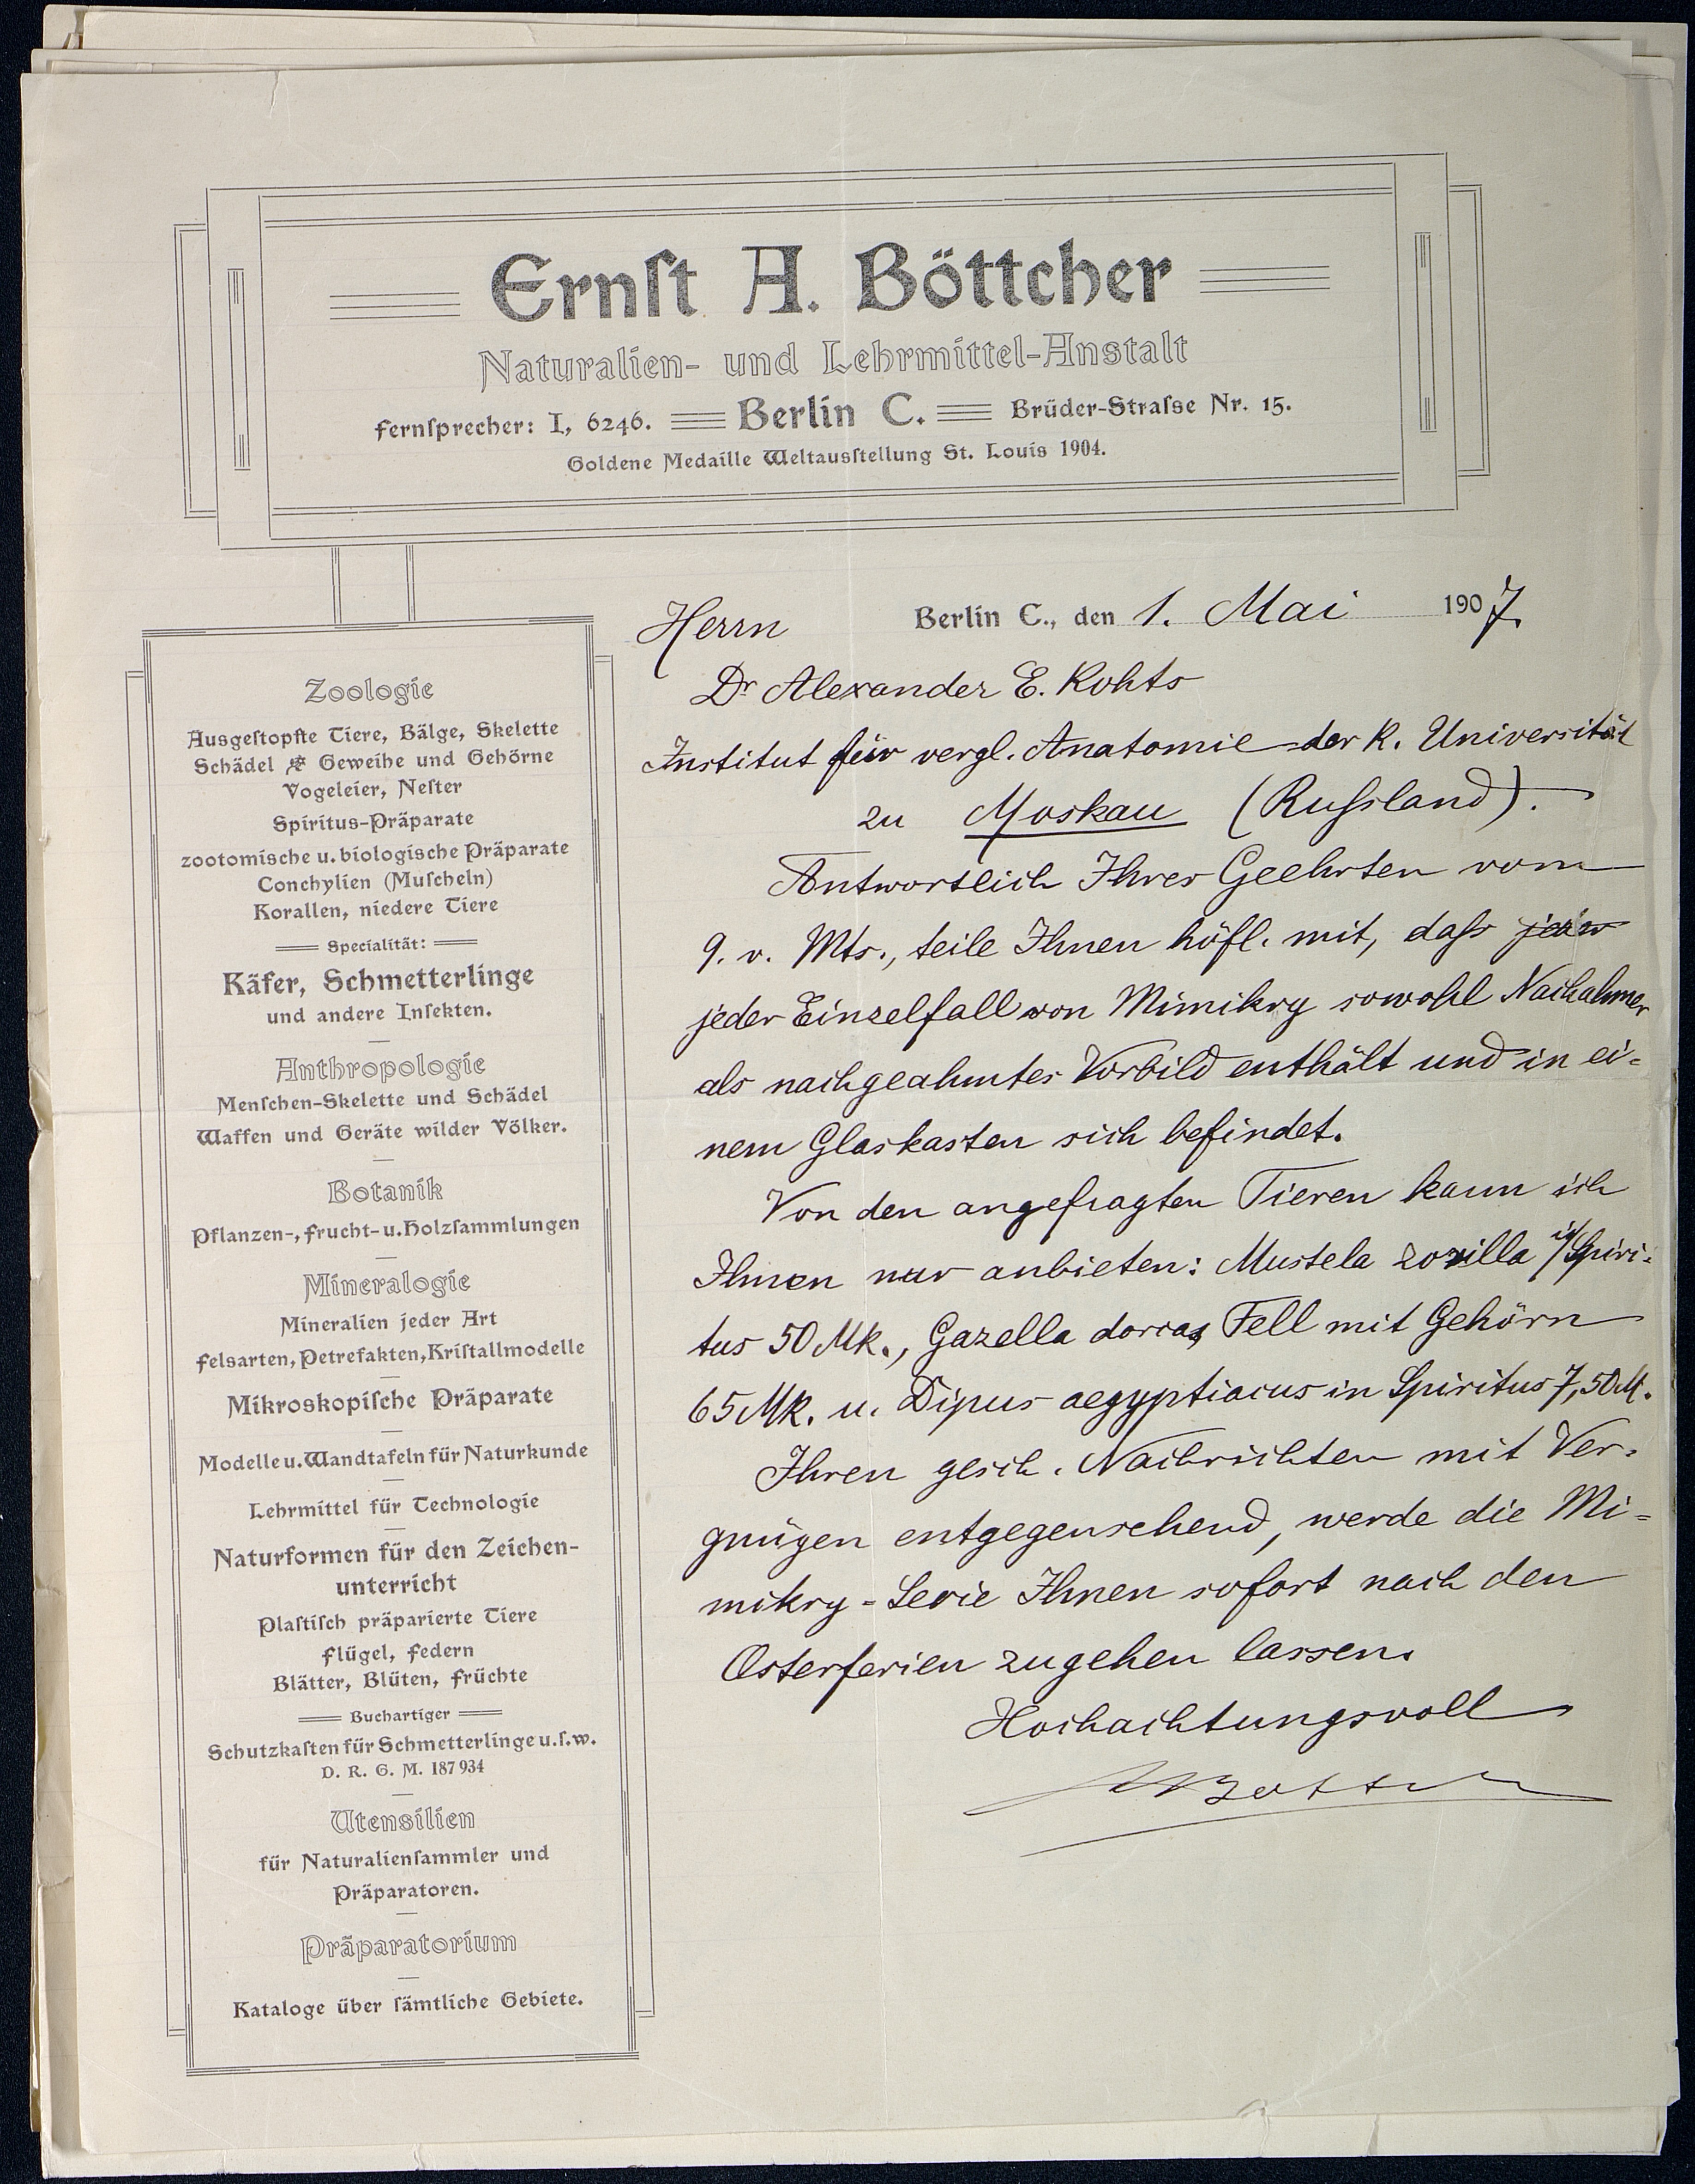 Ernſt A. Böttcher
Naturalien- und Lehrmittel-Anstalt
Fernſprecher: I, 6246. Berlin C. Brüder-Straſse Nr. 15.
Goldene Medaille Weltausſtellung St. Louis 1904.
Zoologie
Ausgeſtopfte Tiere, Bälge, Skelette
Schädel Geweihe und Gehörne
Vogeleier, Neſter
Spiritus-Präparate
zootomische u. biologische Präparate
Conchylien (Muſcheln)
Korallen, niedere Tiere
Specialität:
Käfer, Schmetterlinge
und andere Inſekten.
Anthropologie
Menſchen-Skelette und Schädel
Waffen und Geräte wilder Völker.
Botanik
Pflanzen-, Frucht- u. Holzſammlungen
Mineralogie
Mineralien jeder Art
Felsarten, Petrefakten, Kriſtallmodelle
Mikroskopiſche Präparate
Modelle u. Wandtafeln für Naturkunde
Lehrmittel für Technologie
Naturformen für den Zeichen-
unterricht
Plaſtiſch präparierte Tiere
Flügel, Federn
Blätter, Blüten, Früchte
Buchartiger
Schutzkaſten für Schmetterlinge u. ſ. w.
D. R. G. M. 187934
Utensilien
für Naturalienſammler und
Präparatoren.
Präparatorium
Kataloge über ſämtliche Gebiete.
Berlin C., den 1. Mai 1907.
Herrn
Dr Alexander E. Kohts
Institut für vergl. Anatomie der K. Universität
zu Moskau (Ruſsland).
Antwortlich Ihres Geehrten vom
9. v. Mts., teile Ihnen höfl. mit, daſs
jeder Einzelfall von Mimikry sowohl Nachahmer
als nachgeahmtes Vorbild enthält und in ei=
nem Glaskasten sich befindet.
Von den angefragten Tieren kann ich
Ihnen nur anbieten: Mustela zorilla i/Spiri=
tus 50 Mk., Gazella dorcas Fell mit Gehörn
65 Mk. u. Dipus aegyptiacus in Spiritus 7,50 M.
Ihren gesch. Nachrichten mit Ver=
gnügen entgegensehend, werde die Mi=
mikry-Serie Ihnen sofort nach den
Osterferien zugehen lassen.
Hochachtungsvoll